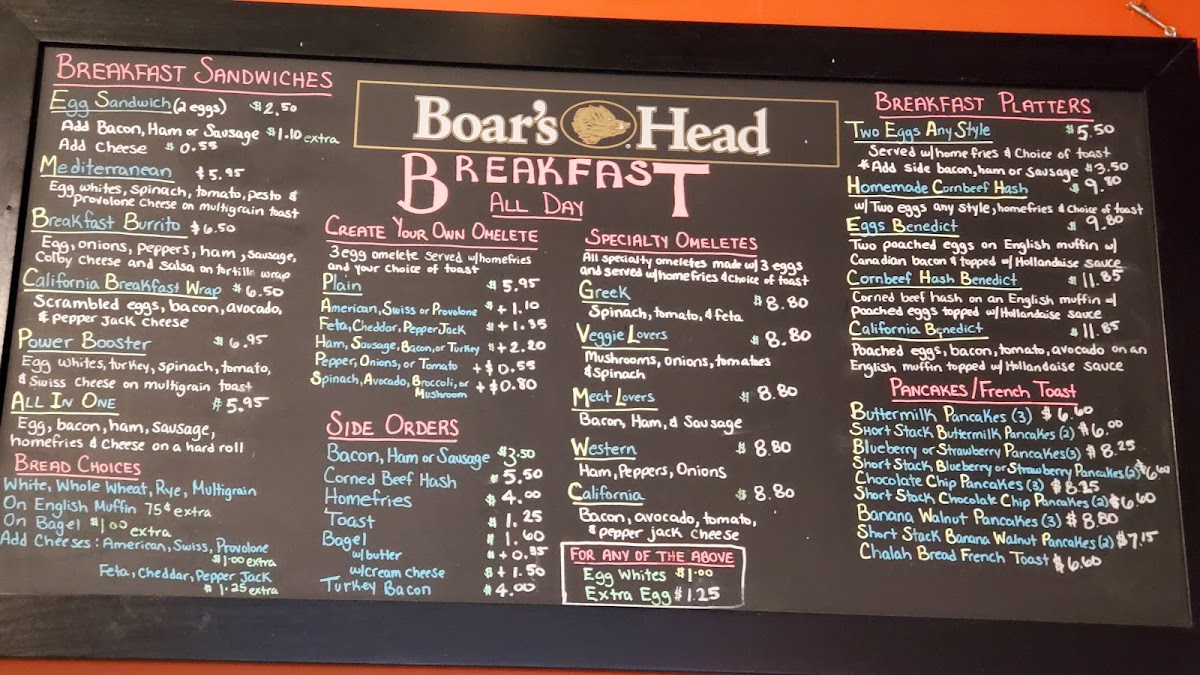 BREAKFAST SANDWICHES
Egg Sandwich (2 eggs) $2.50
Add Bacon, Ham or Sausage $1.10 extra
Add Cheese $0.55
Mediterranean $5.95
Egg whites, spinach, tomato, pesto &
provolone Cheese on multigrain toast
Breakfast Burrito $6.50
Egg, onions, peppers, ham, sausage,
Colby cheese and salsa on tortilla wrap
California Breakfast Wrap $6.50
Scrambled eggs, bacon, avocado,
& pepper jack cheese
Power Booster $6.95
Egg whites, turkey, spinach, tomato,
& Swiss cheese on multigrain toast
ALL IN ONE $5.95
Egg, bacon, ham, sausage,
homefries & Cheese on a hard roll
BREAD CHOICES
White, Whole Wheat, Rye, Multigrain
On English Muffin 75¢ extra
On Bagel $1.00 extra
Add Cheeses: American, Swiss, Provolone
$1.00 extra
Feta, Cheddar, Pepper Jack
$1.25 extra
Boar's Head
BREAKFAST
ALL DAY
CREATE YOUR OWN OMELETE
3 egg omelete served w/homefries
and your choice of toast
Plain $5.95
American, Swiss or Provolone $+1.10
Feta, Cheddar, Pepper Jack $+1.35
Ham, Sausage, Bacon, or Turkey $+2.20
Pepper, Onions, or Tomato +$0.55
Spinach, Avocado, Broccoli, or
Mushroom +$0.80
SIDE ORDERS
Bacon, Ham or Sausage $3.50
Corned Beef Hash $5.50
Homefries $4.00
Toast $1.25
Bagel $1.60
w/butter $+0.85
w/cream cheese $+1.50
Turkey Bacon $4.00
SPECIALTY OMELETES
All specialty omeletes made w/3 eggs
and served w/homefries & choice of toast
Greek $8.80
Spinach, tomato, & feta
Veggie Lovers $8.80
Mushrooms, onions, tomatoes
& Spinach
Meat Lovers $8.80
Bacon, Ham, & Sausage
Western $8.80
Ham, Peppers, Onions
California $8.80
Bacon, avocado, tomato,
& pepper jack cheese
FOR ANY OF THE ABOVE
Egg Whites $1.00
Extra Egg $1.25
BREAKFAST PLATTERS
Two Eggs Any Style $5.50
Served w/home fries & Choice of toast
*Add side bacon, ham or sausage $3.50
Homemade Cornbeef Hash $9.80
w/ Two eggs any style, homefries & Choice of toast
Eggs Benedict $9.80
Two poached eggs on English muffin w/
Canadian bacon & topped w/ Hollandaise sauce
Cornbeef Hash Benedict $11.85
Corned beef hash on an English muffin w/
poached eggs topped w/Hollandaise sauce
California Benedict $11.85
Poached eggs, bacon, tomato, avocado on an
English muffin topped w/Hollandaise sauce
PANCAKES/French Toast
Buttermilk Pancakes (3) $6.60
Short Stack Buttermilk Pancakes (2) $6.00
Blueberry or Strawberry Pancakes (3) $8.25
Short Stack Blueberry or Strawberry Pancakes (2) $6.60
Chocolate Chip Pancakes (3) $8.25
Short Stack Chocolate Chip Pancakes (2) $6.60
Banana Walnut Pancakes (3) $8.80
Short Stack Banana Walnut Pancakes (2) $7.15
Chalah Bread French Toast $6.60